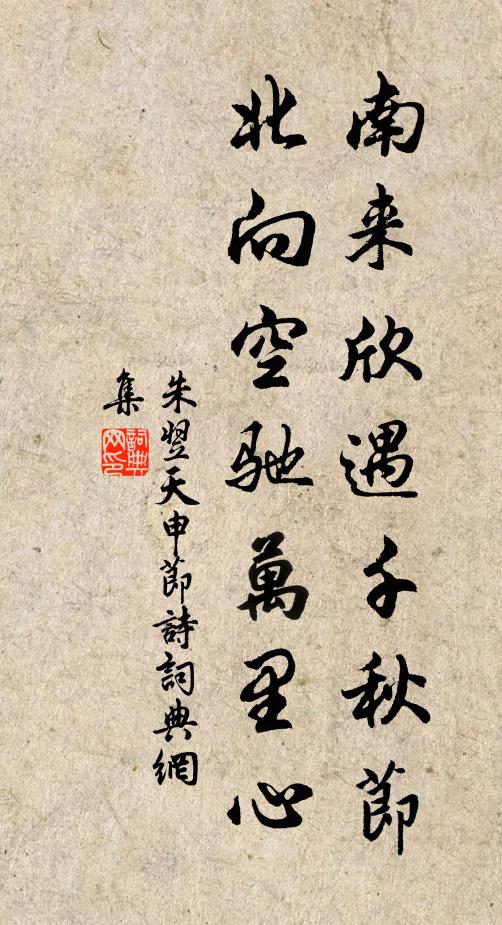 南来欣遇千秋節
北向空馳萬里心
朱翌天申節詩詞典網
集
詞典網印